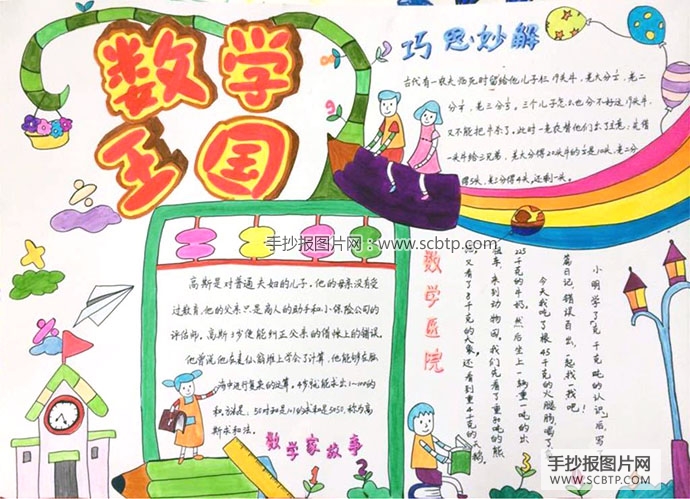 数学
王国
巧思妙解
古代有一农夫临死时留给他儿子们19头牛,老大分½,老二
分¼,老三分⅕。三个儿子怎么也分不好这19头牛
又不能把牛杀了。此时一老农替他们出了主意:先借
一头牛给三兄弟,老大分得20头牛的½是10头,老二分
得5头,老三分得4头,还剩一头。
手抄报图片网:www.scbtp.com
高斯是对普通夫妇的儿子,他的母亲没有受
过教育,他的父亲只是商人的助手和小保险公司的
评估师,高斯3岁便能纠正父亲的借帐上的错误。
他曾说他在麦仙翁堆上学会了计算,他能够在脑
海中进行复杂的运算,9岁就能求出1~100的
和,方法是:50对和是101的求和是5050,称为高
斯求和法。
数学家故事
数学医院
小明学了克、千克、吨的认识后,写了一
篇日记,错误百出,一起找一找吧!
今天我吃了根45千克的火腿肠,喝了
225千克的牛奶,然后坐上一辆重一吨的出
租车,来到动物园。我们先看了重和吨的熊
又看了8千克的大象,还看到重4千克的天鹅
1
2
3
手抄报图片网
SCBTP.COM